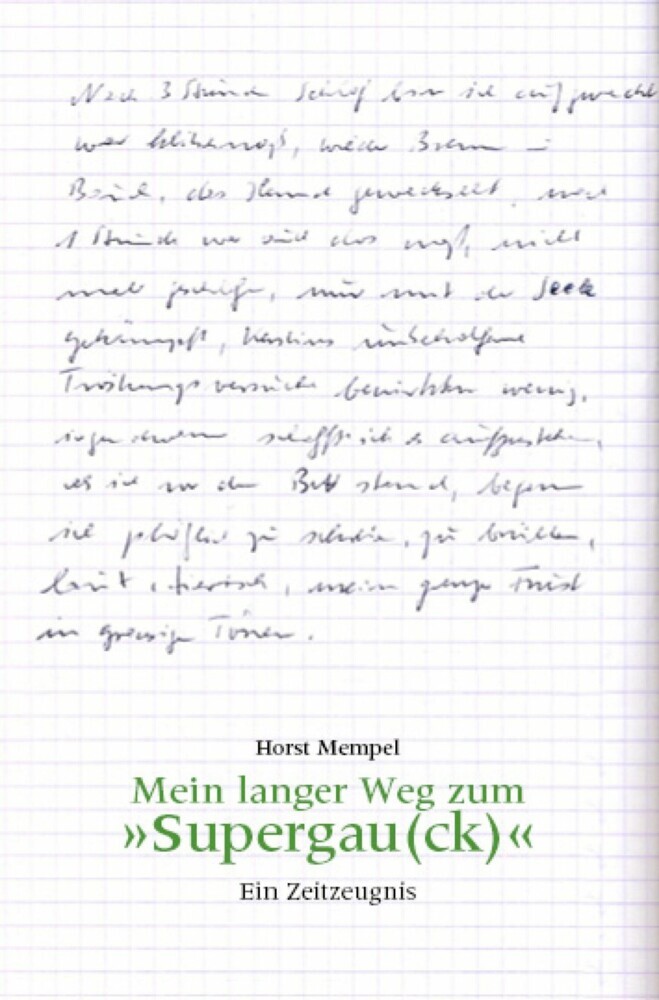 Nach 3 Stunden Schlaf bin ich aufgewacht
war klitschnaß, wieder
das Hemd gewechselt, nach
1 Stunde war auch das naß, nicht
mehr geschlafen, nur mit der Seele
gekämpft, Kerstins unbeholfene
Tröstungsversuche bewirkten wenig,
irgendwann schaffte ich es aufzustehen,
als ich vor dem Bett stand, begann
ich plötzlich zu schreien, zu brüllen,
laut, tierisch, meinen ganzen Frust
in grausigen Tönen.
Horst Mempel
Mein langer Weg zum
»Supergau(ck)«
Ein Zeitzeugnis